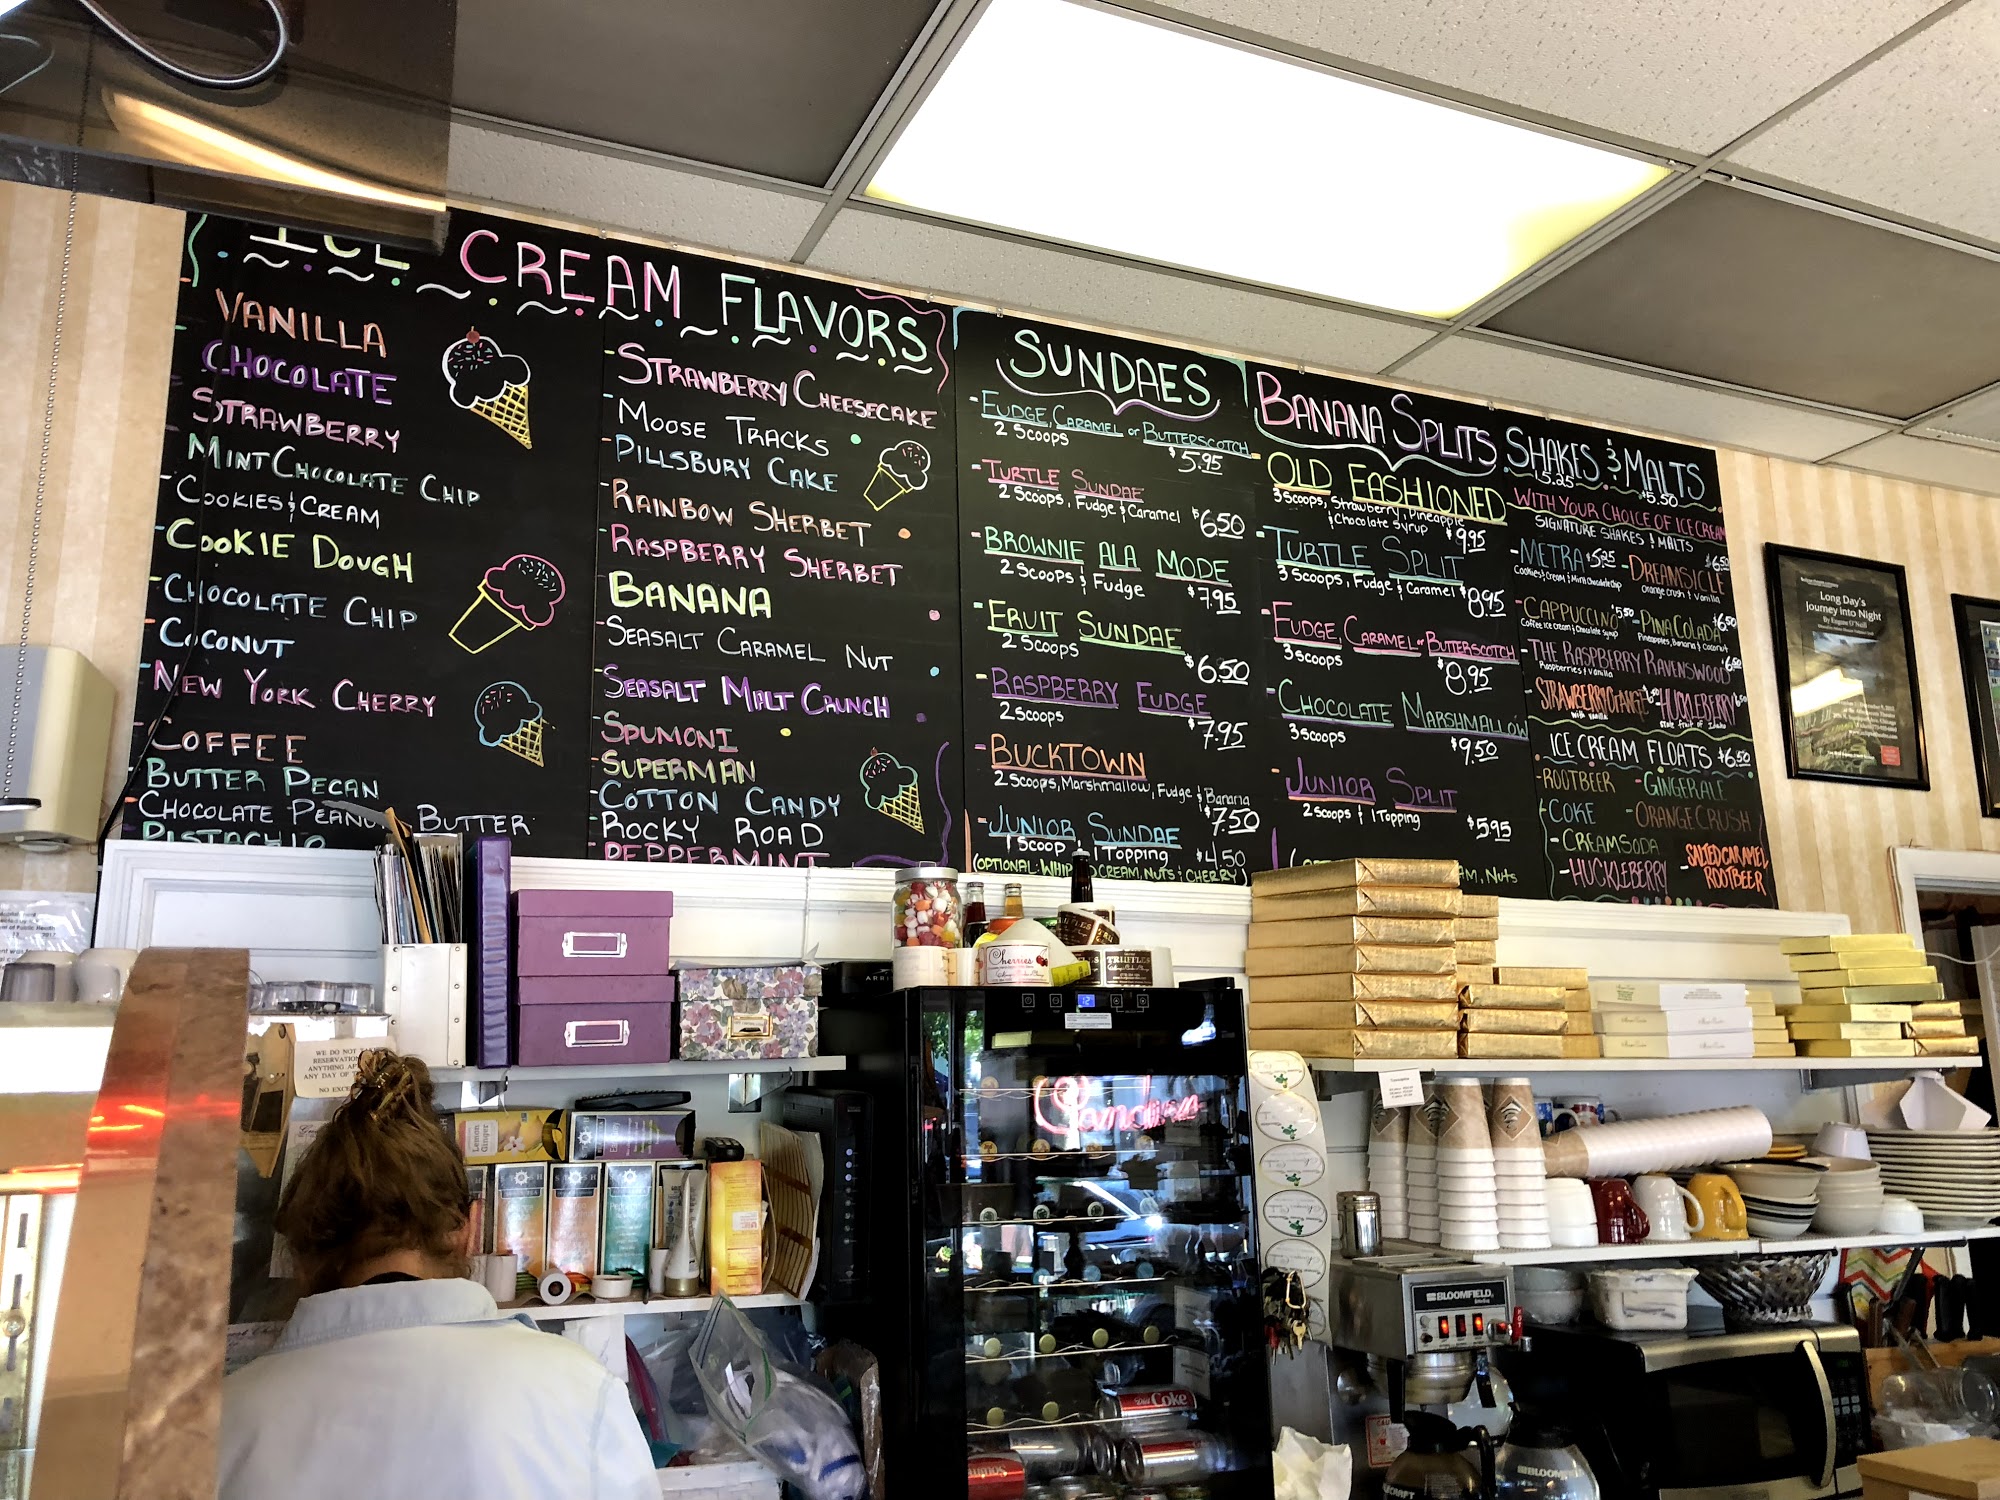 ICE CREAM FLAVORS
VANILLA
CHOCOLATE
STRAWBERRY
MINT CHOCOLATE CHIP
COOKIES & CREAM
COOKIE DOUGH
CHOCOLATE CHIP
COCONUT
NEW YORK CHERRY
COFFEE
BUTTER PECAN
CHOCOLATE PEANUT BUTTER
PISTACHIO
- STRAWBERRY CHEESECAKE
- MOOSE TRACKS
- PILLSBURY CAKE
- RAINBOW SHERBET
- RASPBERRY SHERBET
BANANA
- SEASALT CARAMEL NUT
- SEASALT MALT CRUNCH
- SPUMONI
- SUPERMAN
- COTTON CANDY
- ROCKY ROAD
PEPPERMINT
SUNDAES
- FUDGE, CARAMEL or BUTTERSCOTCH
2 SCOOPS
$5.95
- TURTLE SUNDAE
2 Scoops, Fudge & Caramel $6.50
- BROWNIE ALA MODE
2 Scoops & Fudge $7.95
- FRUIT SUNDAE
2 SCOOPS
$6.50
- RASPBERRY FUDGE
2 SCOOPS
$7.95
- BUCKTOWN
2 Scoops, Marshmallow, Fudge & Banana
$7.50
- JUNIOR SUNDAE
1 Scoop, 1 Topping $4.50
(OPTIONAL: WHIPPED CREAM, NUTS & CHERRY)
BANANA SPLITS
OLD FASHIONED
3 Scoops, Strawberry, Pineapple
& Chocolate Syrup $9.95
- TURTLE SPLIT
3 Scoops, Fudge & Caramel $8.95
- FUDGE, CARAMEL or BUTTERSCOTCH
3 SCOOPS
$8.95
- CHOCOLATE MARSHMALLOW
3 SCOOPS
$9.50
- JUNIOR SPLIT
2 scoops & 1 Topping
$5.95
NUTS
SHAKES & MALTS
5.25 $5.50
WITH YOUR CHOICE OF ICE CREAM
SIGNATURE SHAKES & MALTS
- METRA $5.25
Cookies & Cream & Mint Chocolate Chip
- DREAMSICLE $6.50
Orange crush & Vanilla
- CAPPUCCINO $5.50
Coffee Ice Cream & Chocolate Syrup
- PINA COLADA $6.50
Pineapples, Banana & Coconut
- THE RASPBERRY RAVENSWOOD $6.50
Raspberries & Vanilla
- STRAWBERRY ORANGE
with Vanilla
- HUCKLEBERRY
State fruit of Idaho
ICE CREAM FLOATS $6.50
- ROOTBEER
- GINGERALE
- COKE
- ORANGE CRUSH
- CREAM SODA
- HUCKLEBERRY
- SALTED CARAMEL ROOTBEER
Long Day's
Journey into Night
By Eugene O'Neill
Cherries
TRUFFLES
WE DO NOT TAKE
RESERVATIONS
ANYTHING
ANY DAY OF
NO
Lemon
Ginger
12
BLOOMFIELD
HOT
Diet Coke